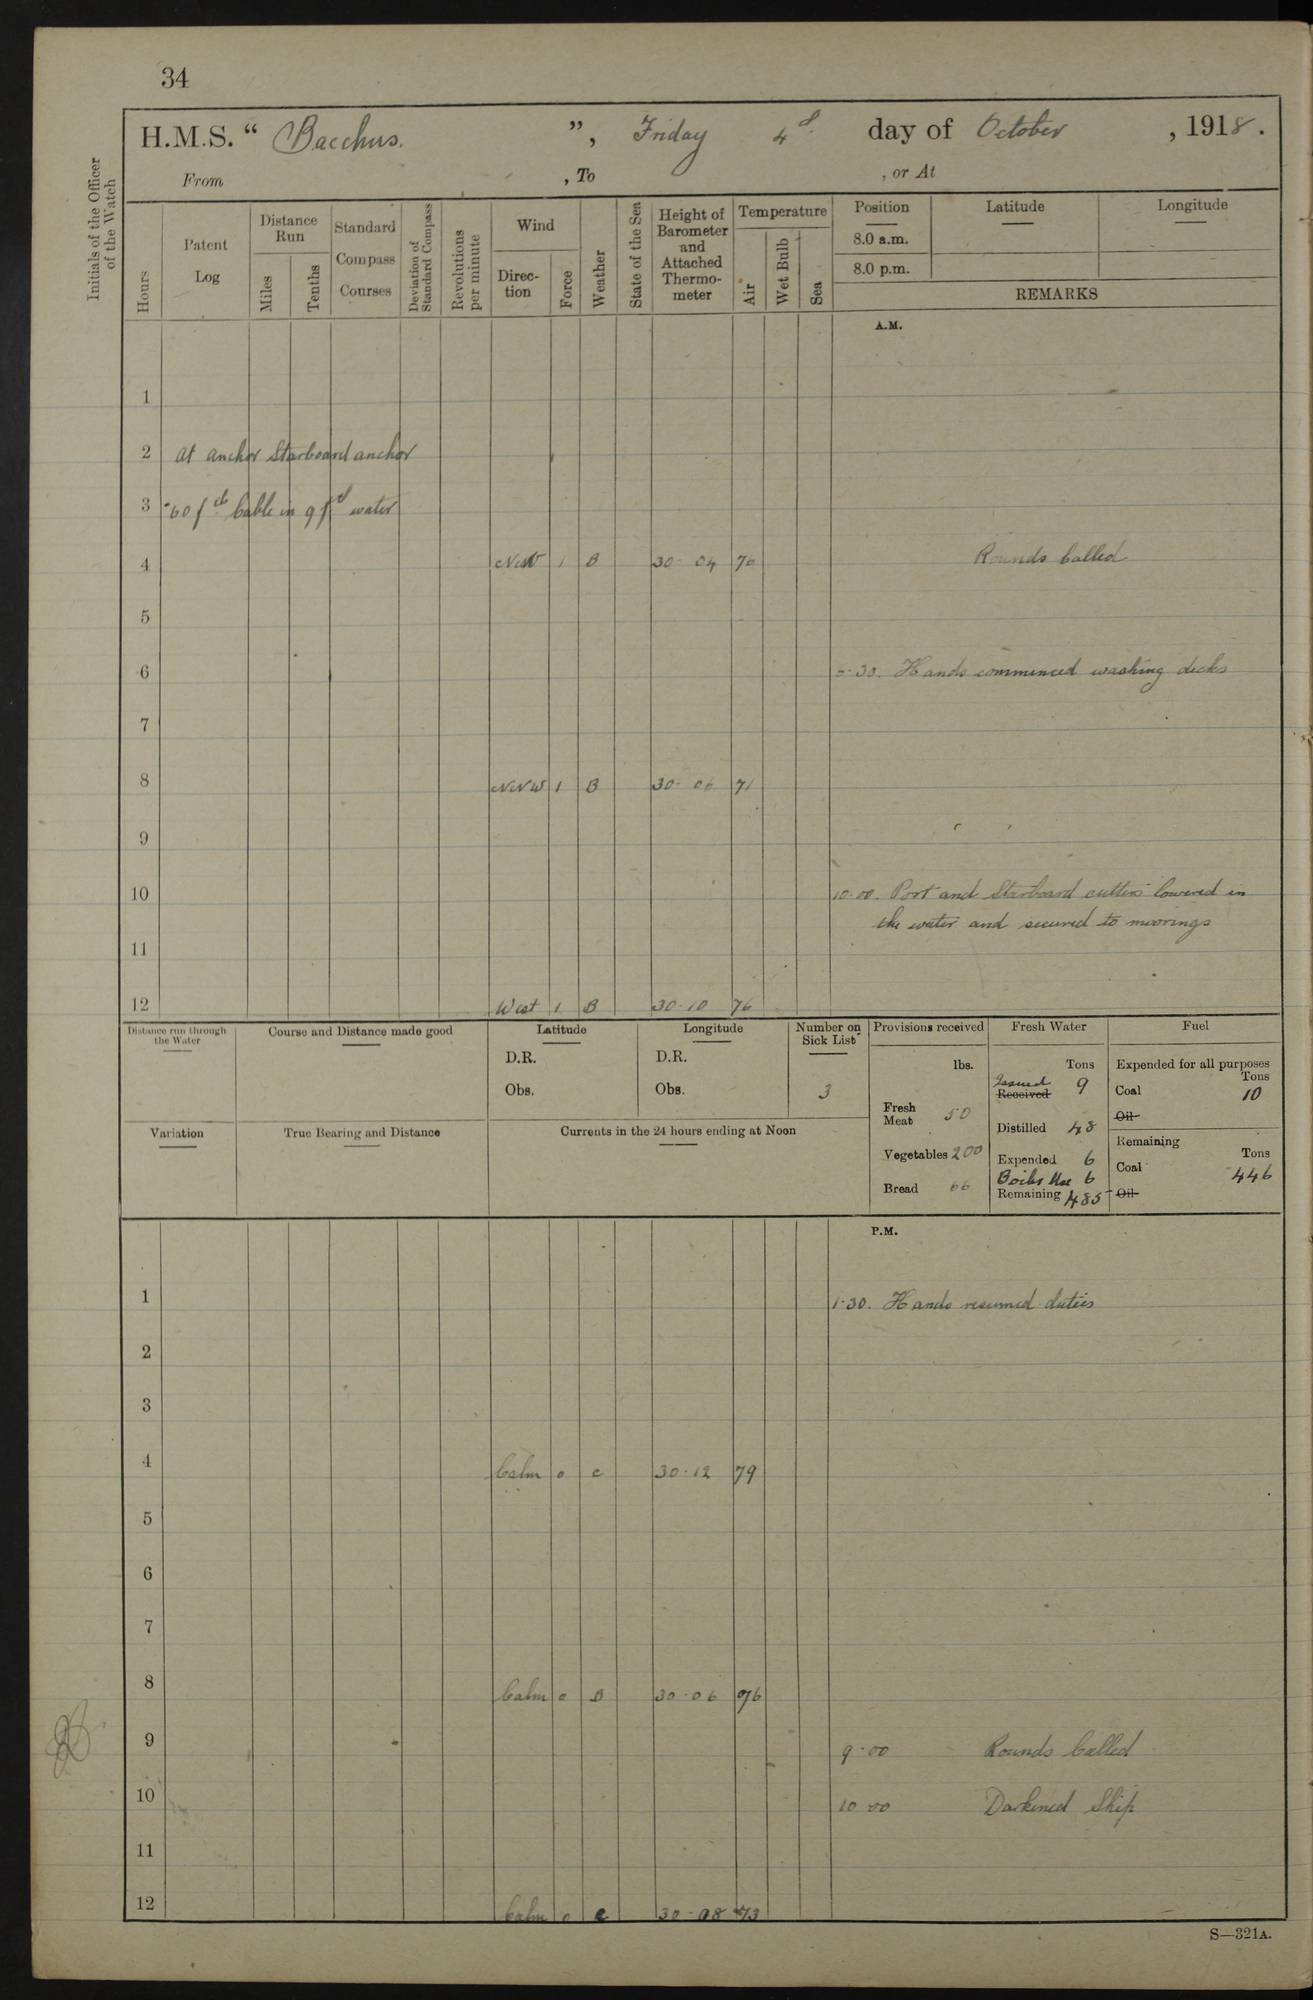 34
H.M.S. “ Bacchus. ”, Friday 4th day of October , 1918.
From , To , or At
Initials of the Officer of the Watch
Hours
Patent Log
Distance Run
Miles
Tenths
Standard Compass Courses
Deviation of Standard Compass
Revolutions per minute
Wind
Direc-tion
Force
Weather
State of the Sea
Height of Barometer and Attached Thermo-meter
Temperature
Air
Wet Bulb
Sea
Position Latitude Longitude
8.0 a.m.
8.0 p.m.
REMARKS
A.M.
1
2 At anchor Starboard anchor
3 60 fth Cable in 9 fth water
4 NNW 1 B 30·04 76 Rounds Called
5
6 30. Hands commenced washing decks
7
8 NNW 1 B 30·06 71
9
10 10·00. Port and Starboard cutters lowered in
the water and secured to moorings
11
12 West 1 B 30·10 76
Distance run through the Water
Course and Distance made good
Latitude
D.R.
Obs.
Longitude
D.R.
Obs.
Number on Sick List
3
Variation
True Bearing and Distance
Currents in the 24 hours ending at Noon
Provisions received
lbs.
Fresh Meat 50
Vegetables 200
Bread 66
Fresh Water
Tons
Issued
Received 9
Distilled 48
Expended 6
Boiler Use 6
Remaining 485
Fuel
Expended for all purposes
Tons
Coal 10
Oil
Remaining
Tons
Coal 446
Oil
P.M.
1 1·30. Hands resumed duties
2
3
4 Calm 0 c 30·12 79
5
6
7
8 Calm 0 B 30·06 76
9 9·00 Rounds Called
10 10 00 Darkened Ship
11
12 Calm 0 c 30·08 73
S—321A.